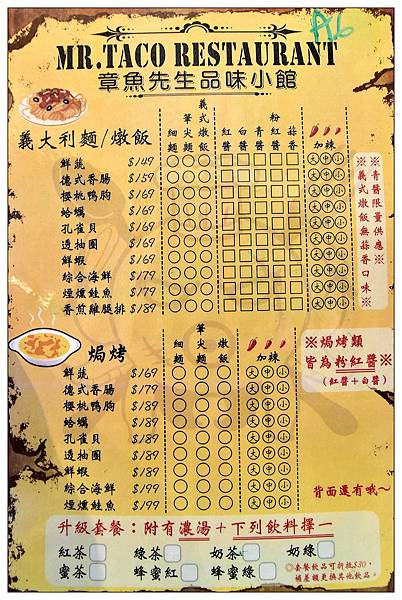 A6
MR.TACO RESTAURANT
章魚先生品味小館
義大利麵/燉飯
細麵 筆尖麵 義式燉飯 紅醬 白醬 青醬 粉紅醬 蒜香 加辣
鮮蔬 $149 大 中 小
德式香腸 $159 大 中 小
櫻桃鴨胸 $169 大 中 小
蛤蠣 $169 大 中 小
孔雀貝 $169 大 中 小
透抽圈 $169 大 中 小
鮮蝦 $169 大 中 小
綜合海鮮 $179 大 中 小
煙燻鮭魚 $179 大 中 小
香煎雞腿排 $189 大 中 小
※青醬限量供應※
※義式燉飯無蒜香口味※
焗烤
細麵 筆尖麵 燉飯 加辣
鮮蔬 $169 大 中 小
德式香腸 $179 大 中 小
櫻桃鴨胸 $189 大 中 小
蛤蠣 $189 大 中 小
孔雀貝 $189 大 中 小
透抽圈 $189 大 中 小
鮮蝦 $189 大 中 小
綜合海鮮 $199 大 中 小
煙燻鮭魚 $199 大 中 小
※焗烤類
皆為粉紅醬※
(紅醬+白醬)
背面還有哦～
升級套餐：附有濃湯+下列飲料擇一
紅茶 綠茶 奶茶 奶綠
蜜茶 蜂蜜紅 蜂蜜綠
◎套餐飲品可折抵$30,
補差額更換其他飲品。